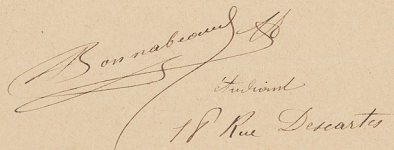 Bonnabeaud
Etudiant
18 Rue Descartes